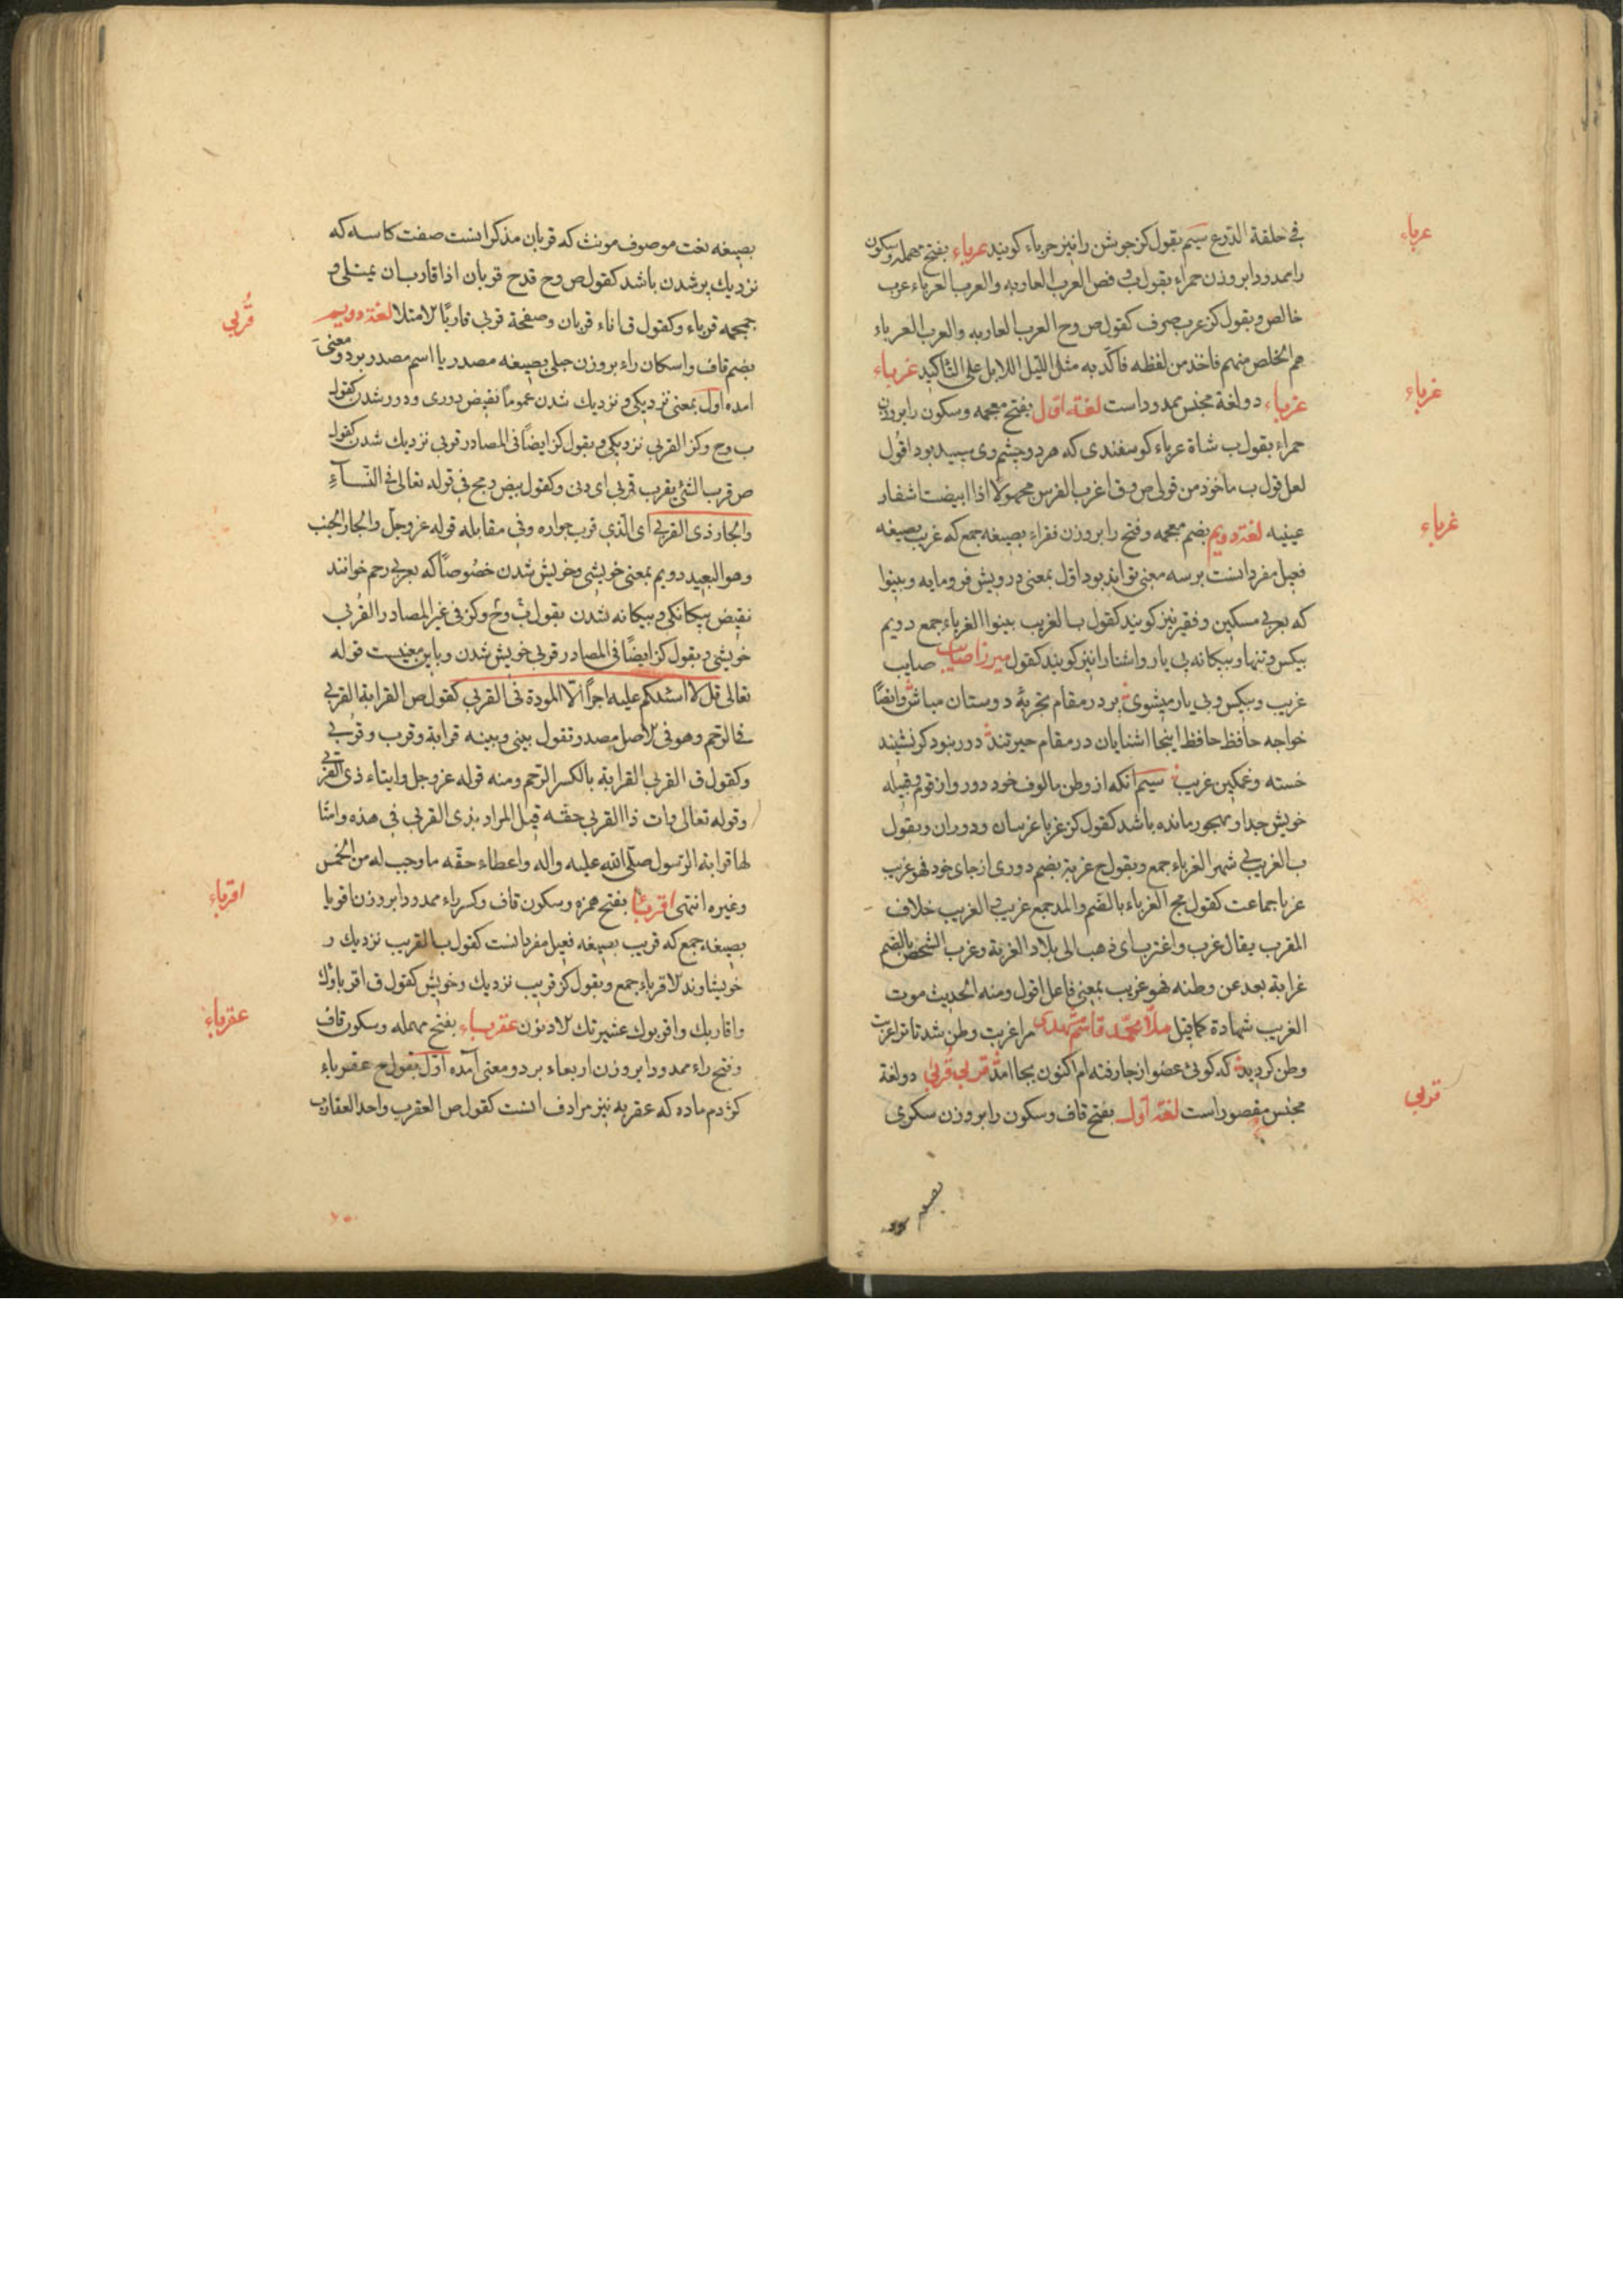 في حلقة الدّرع سیم بقول کز جوشن را نیز حرباء کویند عرباء بفتح مهمله وسکون
عرباء
را ممدودا بروزن حمراء بقول ف فص العرب العاربه والعرب العرباء عرب
خالص وبقول کز عرب صرف کقول ص وح العرب العاربه والعرب العرباء
هم الخلص منهم فاخذ من لفظه فاکّد به مثل اللیل اللایل علی التاکید غرباء
غرباء
غرباء دو لغة مجنس ممدود است لغة اول بفتح معجمه وسکون را بروزن
حمراء بقول ب شاة غرباء کوسفندی که هر دو چشم وی سپید بود اقول
لعل قول ب ماخوذ من قولی ص وق اغرب الفرس مجهولاً اذا ابیضت اشفار
غرباء
عینیه لغة دویم بضم معجمه وفتح را بروزن فقراء بصیغه جمع که غریب بصیغه
فعیل مفرد انست برسه معنی تواند بود اول بمعنی درویش فرومایه وبینوا
که بعربی مسکین وفقیر نیز کویند کقول ب الغریب بینوا الغرباء جمع دویم
بیکس وتنها وبیکانه بی یار واشنا را نیز کویند کقول میرزا صایب صایب
غریب وبیکس وبی یار میشوی برد در مقام تجربهٔ دوستان مباش وایضاً
خواجه حافظ حافظ اینجا اشنایان در مقام حیرتند دور نبود کر نشیند
خسته وغمکین غریب سیم انکه از وطن مالوف خود دور واز قوم وقبیله
خویش جدا ومهجور مانده باشد کقول کز غربا غریبان ودوران وبقول
ب الغریب بی شهر الغرباء جمع وبقول ح غربة بضم دوری از جای خود فهو غریب
غربا جماعت کقول مج الغرباء بالضم والمد جمع غریب والغریب خلاف
المقرب یقال غرب واغترب ای ذهب الی بلاد الغربة وغرب الشخص بالضم
غرابة بعد عن وطنه فهو غریب بمعنی فاعل اقول ومنه الحدیث موت
الغریب شهادة کما قیل ملا محمد قاسم مشهدی مرا غربت وطن شد تا ترا غربت
وطن کردید که کوئی عضو از جا رفته‌ام اکنون بجا امد قربی قُربی دو لغة
قربی
مجنس مقصور است لغة اول بفتح قاف وسکون را بروزن سکری
بصیغه
بصیغه نعت موصوف مونث که قربان مذکر انست صفت کاسه که
نزدیك پر شدن باشد کقول ص وح قدح قربان اذا قارب ان یمتلی و
جمجمه قرباء وکقول ق اناء قربان وصفحة قربی قاربا الامتلا لغة دویم
قُربی
بضم قاف واسکان راء بروزن حبلی بصیغه مصدر یا اسم مصدر بر دو معنی
امده اول بمعنی نزدیکی ونزدیك شدن عموماً نقیض دوری ودور شدن کقول
ب وح وکز القربی نزدیکی وبقول کز ایضاً فی المصادر قربی نزدیك شدن کقول
ص قرب الشئ یقرب قربی ای دنی وکقول بیض ومج فی قوله تعالی فی النسآءِ
والجار ذی القربی ای الّذی قرب جواره وفی مقابله قوله عز وجل والجار الجنب
وهو البعید دویم بمعنی خویشی وخویش شدن خصُوصاً که بعربی رحم خوانند
نقیض بیکانکی وبیکانه شدن بقول ف وح وکز فی غیر المصادر القُربی
خویشی وبقول کز ایضاً فی المصادر قربی خویش شدن وباین معنیست قوله
تعالی قل لا اسئلکم علیه اجراً الّا المودة فی القربی کقول ص القرابة القربی
فی الرحم وهو فی الاصل مصدر تقول بینی وبینه قرابة وقرب وقربی
وکقول ق القربی القرابة بالکسر الرّحم ومنه قوله عز وجل وایتاء ذی القربی
وقوله تعالی وات ذا القربی حقّه قیل المراد بذی القربی فی هذه وامثا
لها قرابة الرّسول صلّی الله علیه واله واعطاء حقه ما وجب له من الخمس
اقرباء
وغیره انتهی اقرباء بفتح همزه وسکون قاف وکسر راء ممدودا بروزن اقویا
بصیغه جمع که قریب بصیغه فعیل مفرد انست کقول ب القریب نزدیك و
خویشاوند الاقرباء جمع وبقول کز قریب نزدیك وخویش کقول ق اقرباؤك
عقرباء
واقاربك واقربوك عشیرتك الادنون عقرباء بفتح مهمله وسکون قاف
وفتح راء ممدودا بروزن اربعاء بر دو معنی آمده اول بقول ح عقرباء
کژدم ماده که عقربه نیز مرادف انست کقول ص العقرب واحد العقارب